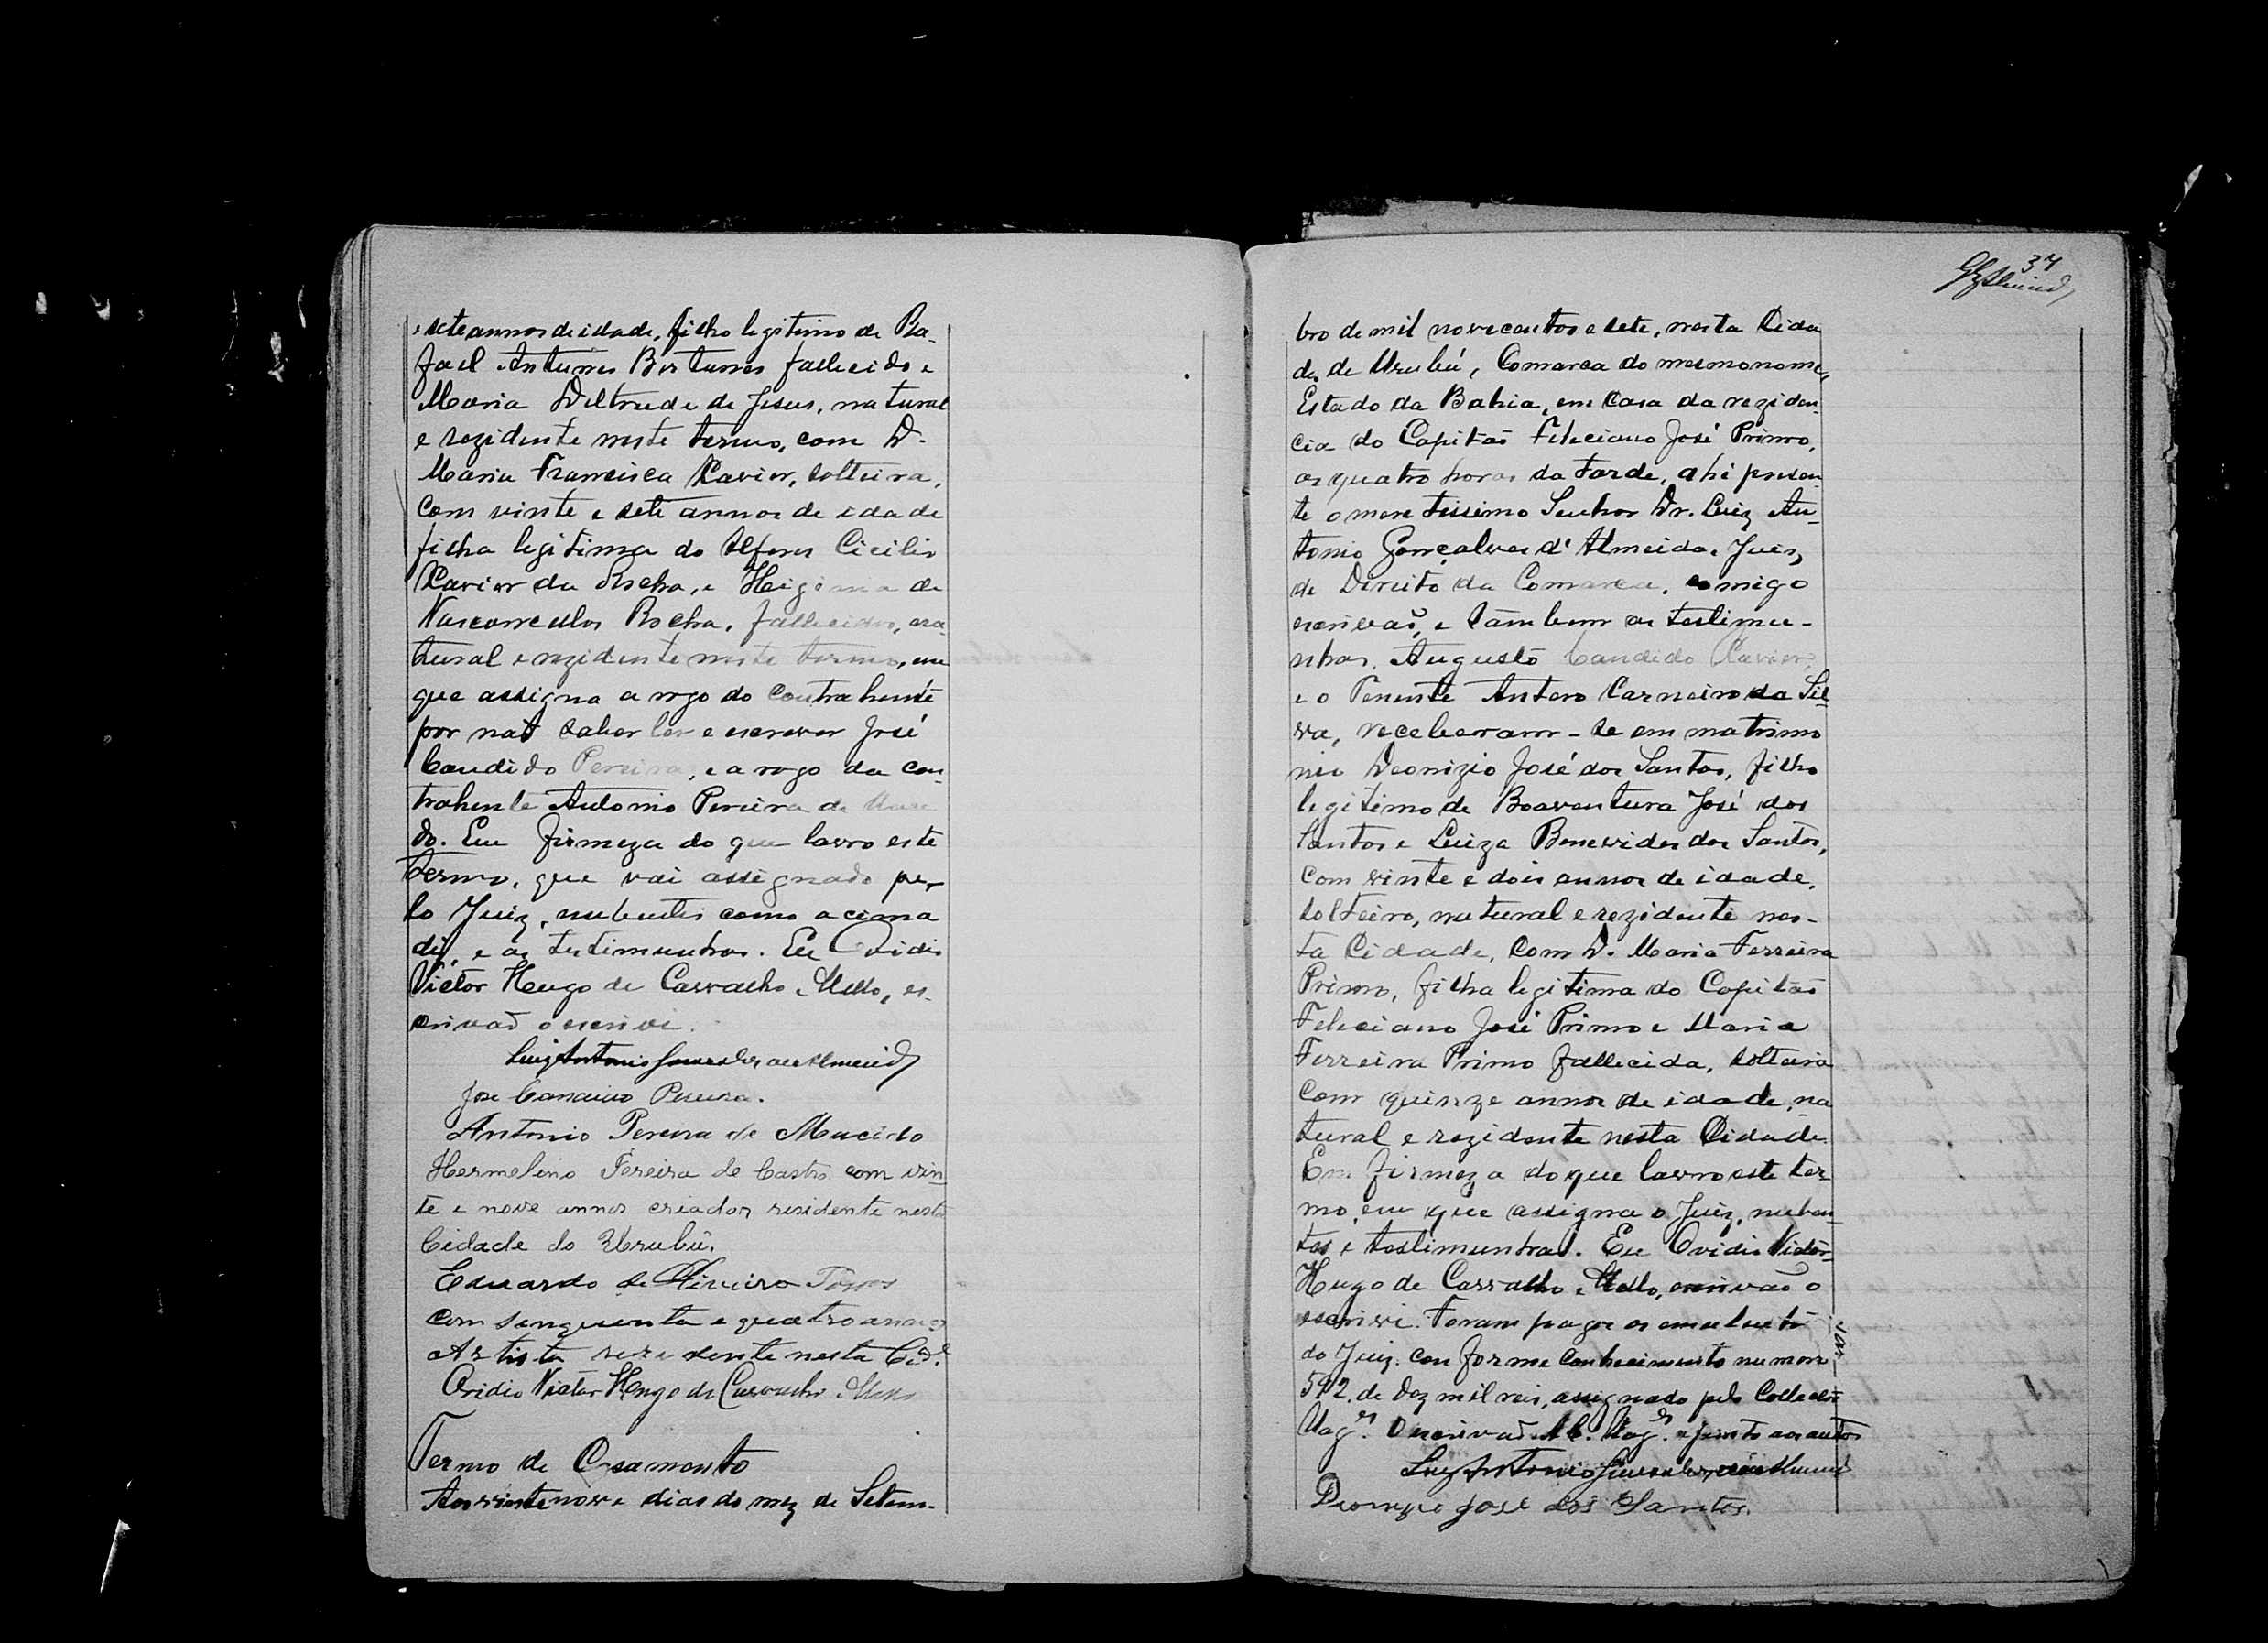 e sete annos de idade, filho legitimo de Ra-
fael Antunes Bortunes fallecido e
Maria Deltrude de Jesus, natural
e rezidente neste termo, com D.
Maria Francisca Xavier, solteira,
com vinte e sete annos de idade
filha legitima do Alferes Cicilio
Xavier da Rocha, e Heigenia de
Vasconcellos Rocha, fallecidos, na-
tural e rezidente neste termo, em
que assigna a rogo do contrahente
por naõ saber ler e escrever José
Candido Pereira, e a rogo da con-
trahente Antonio Pereira de Mace
do. Em firmeza do que lavro este
termo, que vai assignado pe-
lo Juiz, nubentes como acima
diz, e as testimunhas. Eu Ovidio
Victor Hugo de Carvalho e Mello, es-
crivaõ o escrevi.
Luiz Antonio Gonsalves de Almeida
José Candido Pereira.
Antonio Pereira de Macedo
Hermelino Pereira de Castro com vin-
te e nove annos criador residente nesta
Cidade do Urubú.
Eduardo de Oliveira Torres
com sinquenta e quatro annos
Artista rezidente nesta Cid.e
Ovidio Victor Hugo de Carvalho e Mello
Termo de Casamento
Aos vinte nove dias do mez de Setem-
37
bro de mil novecentos e sete, nesta Cida
de, de Urubú, Comarca do mesmo nome,
Estado da Bahia, em casa da reziden-
cia do Capitaõ Feleciano José Primo,
as quatro horas da tarde, ahi presen-
te o meretissimo Senhor Dr. Luiz An-
tonio Gonçalves d'Almeida, Juiz
de Direito da Comarca, comigo
escrivaõ, e tambem as testimu-
nhas, Augusto Candido Xavier,
e o Tenente Antero Carneiro da Sil-
va, receberam-se em matrimo
nio Deonizio José dos Santos, filho
legitimo de Boaventura José dos
Santos e Luiza Benevides dos Santos,
com vinte e dois annos de idade,
solteiro, natural e rezidente nes-
ta Cidade, com D. Maria Ferreira
Primo, filha legitima do Capitaõ
Feleciano José Primo e Maria
Ferreira Primo fallecida, solteira
com quinze annos de idade, na
tural e rezidente nesta Cidade.
Em firmeza do que lavro este ter
mo, em que assigna o Juiz, nuben-
tes e testimunhas. Eu Ovidio Victor
Hugo de Carvalho e Mello, escrivaõ o
escrevi. Foram pagos os emolumentos
do Juiz, conforme conhecimento numero
592, de dez mil reis, assignado pelo Collector
Mag.es O escrivaõ A. C. Mag.es e junto aos autos
Luiz Antonio Gonsalves de Almeida
Deonizio José dos Santos.